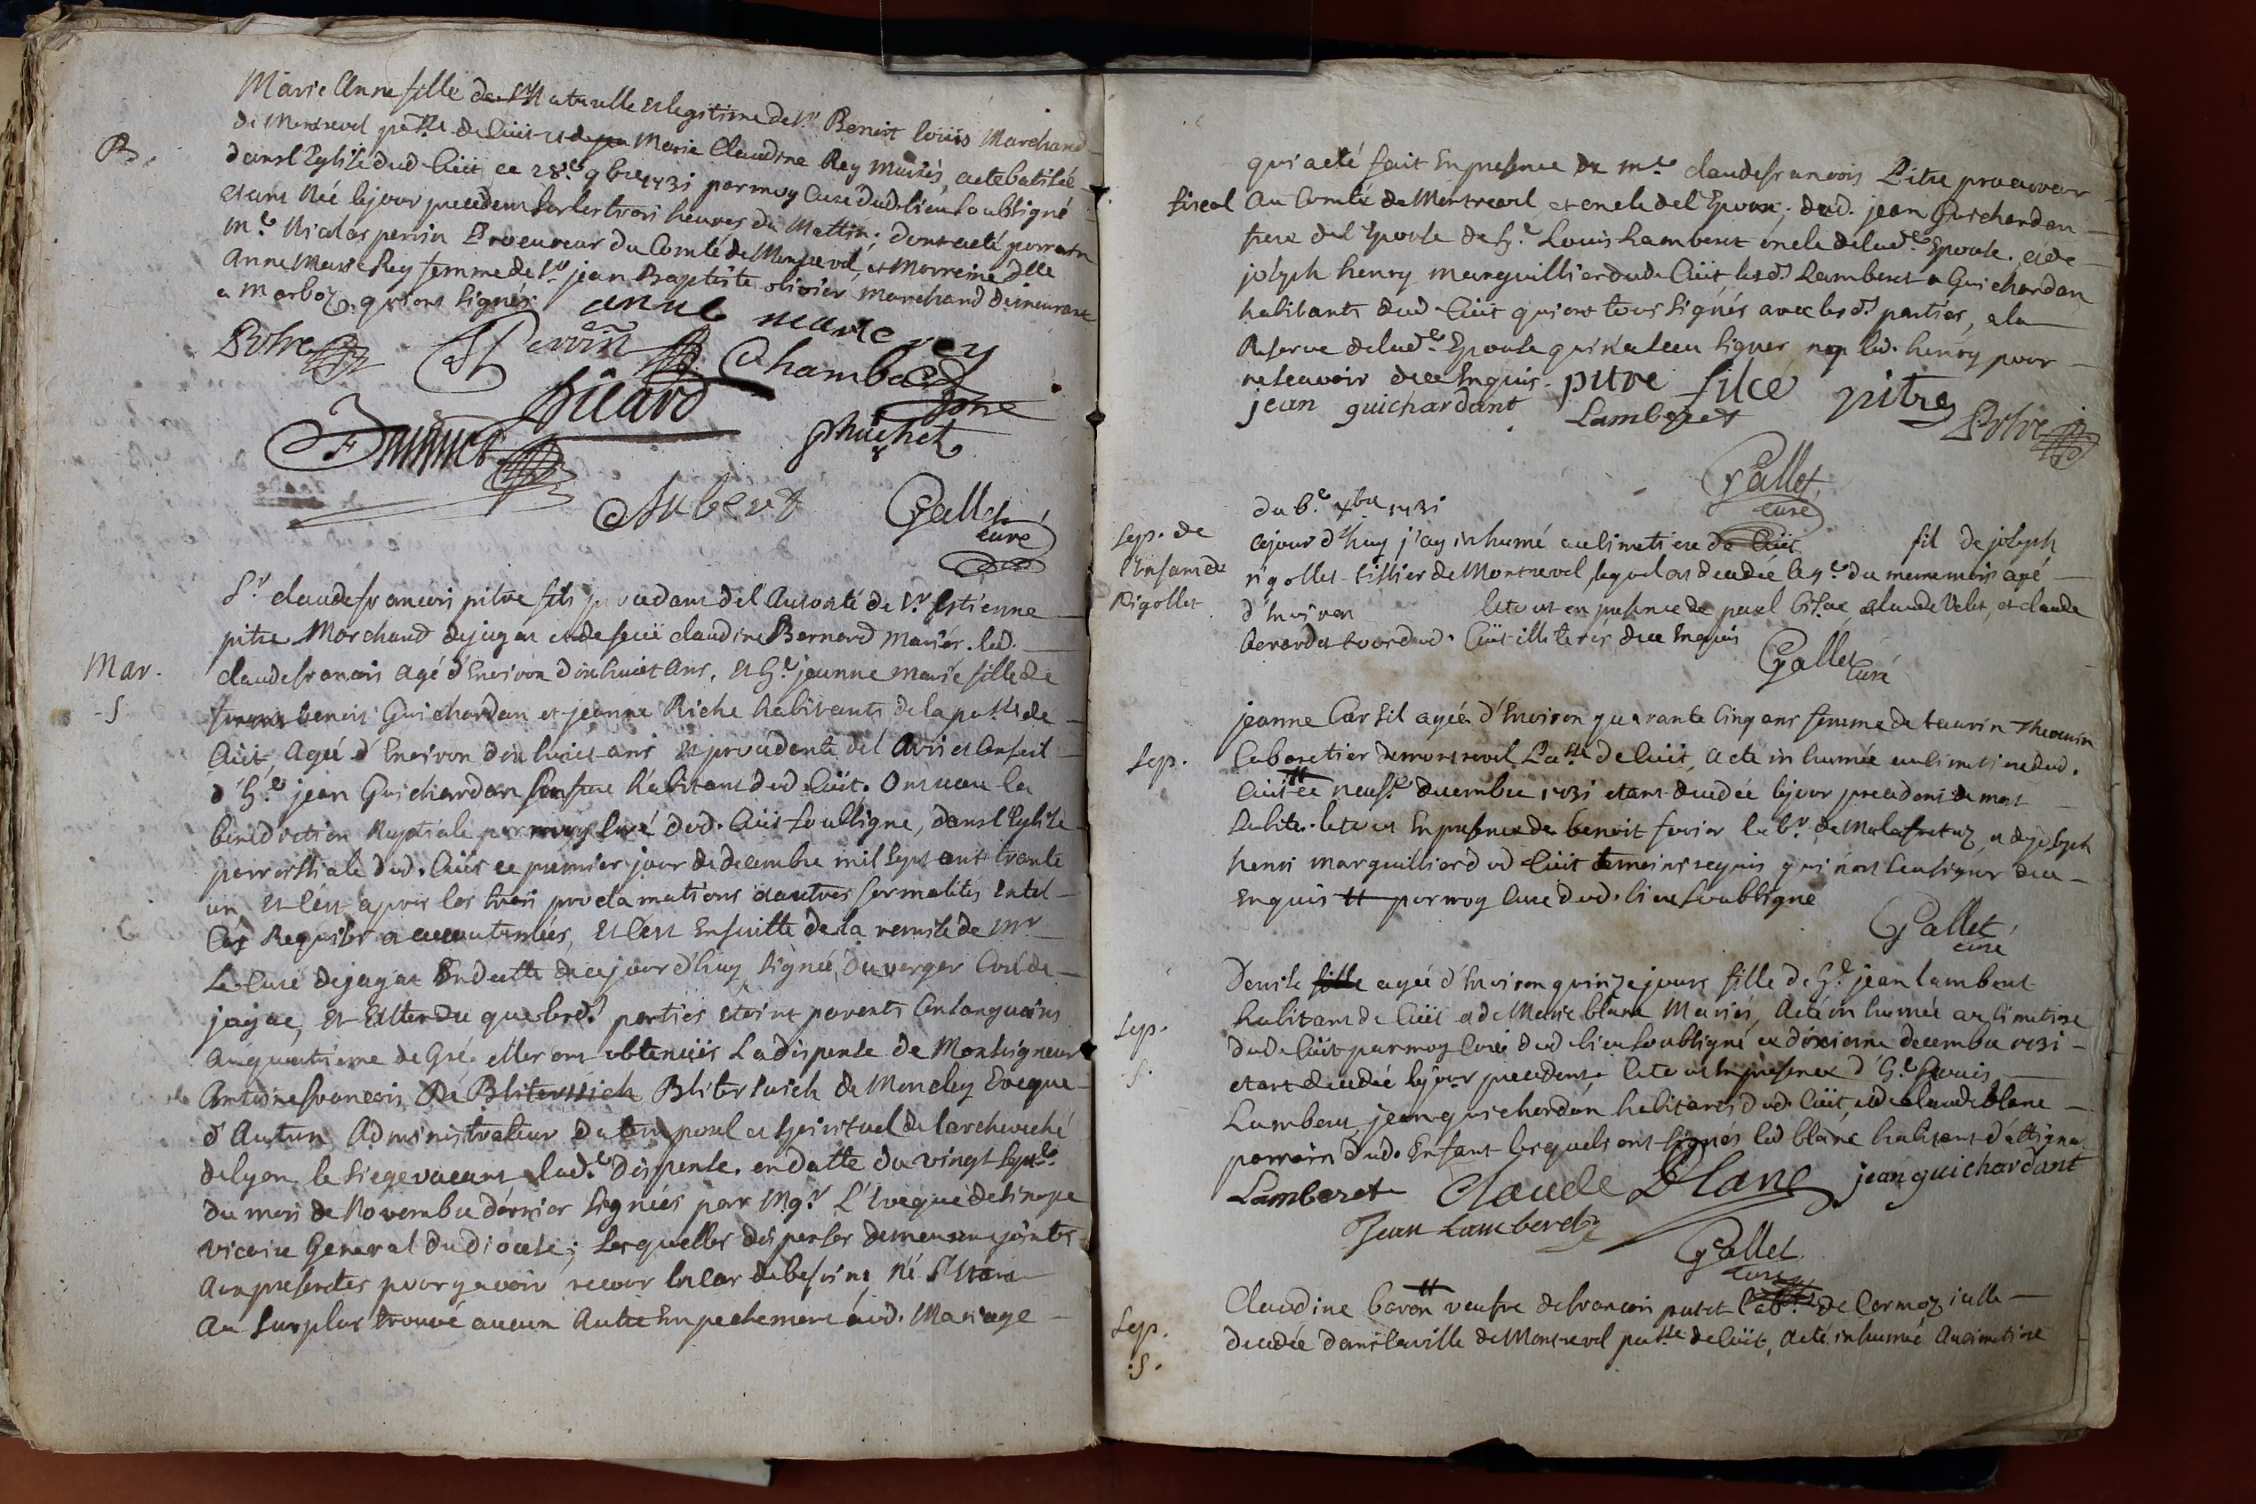 Marie Anne fille de Sr Naturelle et legitime de Sr Benoist loüis Marchand
de Montrevel p.sse de Cüit et de Marie Claudine Rey Mariés, a ete batisée
B.
dans l'Eglise dud. Cüit ce 28.e 9bre 1731 par moy Curé dud. lieu soubsigné
etant Née le jour precedent sur les trois heures du Mattin; dont a eté parrain
m.e Nicolas perrin Procureur du Comté de Montrevel, et Marreine dlle
Anne Marie Rey femme de Sr jean Baptiste olivier marchand demeurant
a Marboz. qui ont signés.
anne marie rey
Pitre Perrin Chambard
Picard
Brunet phuichet
Aubert Gallet
curé
Sr claude francois pitre fils procedant de l'Autorité de Sr Estienne
pitre Marchand de jayat et de feüe claudine Bernard Mariés. led.
Mar.
S
claude francois agé d'Environ dixhuict ans, et h.e jeanne marie fille de
benoist Guichardan et jeanne Riche habitants de la p.sse de
Cüit, Agée d'Environ dixhuict ans et procedante de l'Avis et Conseil
d'h.e jean Guichardan son frere habitant dud. Cüit. Ont receu la
benediction Nuptiale par moy Curé dud. Cüit soubsigne, dans l'Eglise
parroissiale dud. Cüit ce premier jour de decembre mil sept cent trante
un et c'est apres les trois proclamations et autres formalités en tel
Cas Requises et accoutumées, et c'est Ensuitte de la remise de Mr
Le Curé de jayat En datte de ce jour d'huy signée, Duverger Curé de
jayac, et Attendu que lesd. parties etoint parents Consanguins
au quatrieme degré, elles ont obtenües La dispense de Monseigneur
Antoine francois De Bliterswich Bliterswich de Moncley Eveque
d'Autun Administrateur du temporel et Spirituel de l'archeveché
de lyon, le siege vacant lad.e Dispense. en datte du vingt sept.e
du mois de Novembre dernier signées par Mgr L'Eveque de sinope
vicaire General du diocese; lesquelles dispenses demeurent jointes
aux presentes pour y avoir recour en cas de besoin, Ne s'etant
Au surplus trouvé aucun Autre Empechement aud. Mariage
qui a eté fait En presence de m.e claude francois Pitre procureur
fiscal Au Comté de Montrevel et oncle de l'Epoux. dud. jean Guichardan
frere de l'Epouse de h.e Louis Lamberet oncle de lad.e Epouse. et de
joseph henry marguillier dud. Cüit, lesd. Lamberet et Guichardan
habitants dud. Cüit qui ont tous signés avec lesd. parties, a la
Reserve de lad.e Epouse qui n'a sceu signer ny led. henry pour
ne scavoir de ce Enquis. pitre filce pitre
jean guichardant Lamberet Pitre
Gallet
curé
du 6.e xbre 1731
Sep. de
l'enfant de
Rigollet
ce jour d'huy j'ay inhumé au Cimetiere de Cüit fil de joseph
rigollet tissier de Montrevel, lequel est decedé le 5.e du meme mois agé
d'Environ le tout en presence de paul claude Velet, et claude
berardet tous dud. Cüit illiterés de ce Enquis
Gallet
Curé
jeanne Carsil agée d'Environ quarante Cinq ans femme de taurin Thevenin
Sep.
Cabaretier de montrevel Pa.sse de Cüit, a ete inhumée au Cimetiere dud.
Cüit ce neuf.e decembre 1731 etant decedée le jour precedent de mort
subite. le tout En presence de benoit favier lab.r de Malafretaz, et de joseph
henri marguillier dud. Cüit temoins requis qui n'ont sceu signer de ce
Enquis par moy Curé dud. lieu soubsigne
Gallet
curé
Denise fille agée d'Environ quinze jours fille de h.e jean lamberet
Sep.
S.
habitant de Cüit et de Marie blanc Mariés, a eté inhumée au Cimetiere
dud. Cüit par moy Curé dud. lieu soubsigné ce dixieme decembre 1731
etant decedée le jour precedent. le tout En presence d'h.e Louis
Lamberet, jean guichardan habitants dud. Cüit, et de claude blanc
parrain dud. Enfant lesquels ont signés led. blanc habitant d'attignat
Lamberet Claude Blanc jean guichardant
Jean Lamberet
Gallet
curé
Claudine baron veufve de francois putet de Cormoz icelle
Sep.
.S.
decedée dans la ville de Montrevel p.sse de Cüit, a eté inhumée Au cimetiere